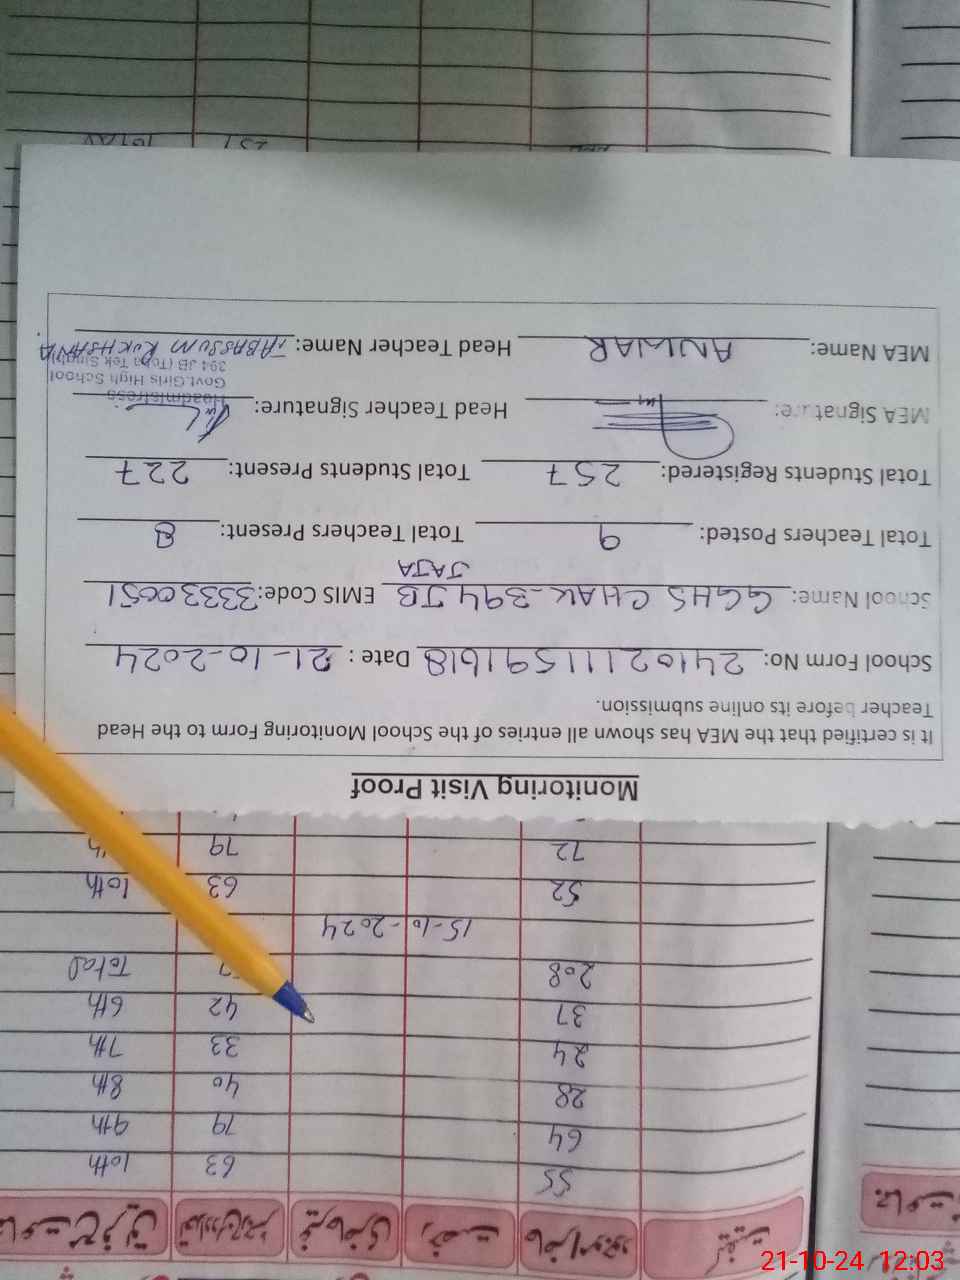 Monitoring Visit Proof
It is certified that the MEA has shown all entries of the School Monitoring Form to the Head
Teacher before its online submission.
School Form No: 24102111591618 Date : 21-10-2024
School Name: GGHS CHAK-394 JB EMIS Code: 33330051
JAJA
Total Teachers Posted: 9 Total Teachers Present: 8
Total Students Registered: 257 Total Students Present: 227
MEA Signature: Head Teacher Signature:
Headmistress
Govt.Girls High School
394 JB (Toba Tek Singh)
MEA Name: ANWAR Head Teacher Name: TABASSUM RUKHSANA
جماعت
حاضر موجود رخصت غیر حاضری
10th 63 55
9th 79 64
8th 40 28
7th 33 24
6th 42 37
Total 208
15-10-2024
10th 63 52
79 72
21-10-24 12:03